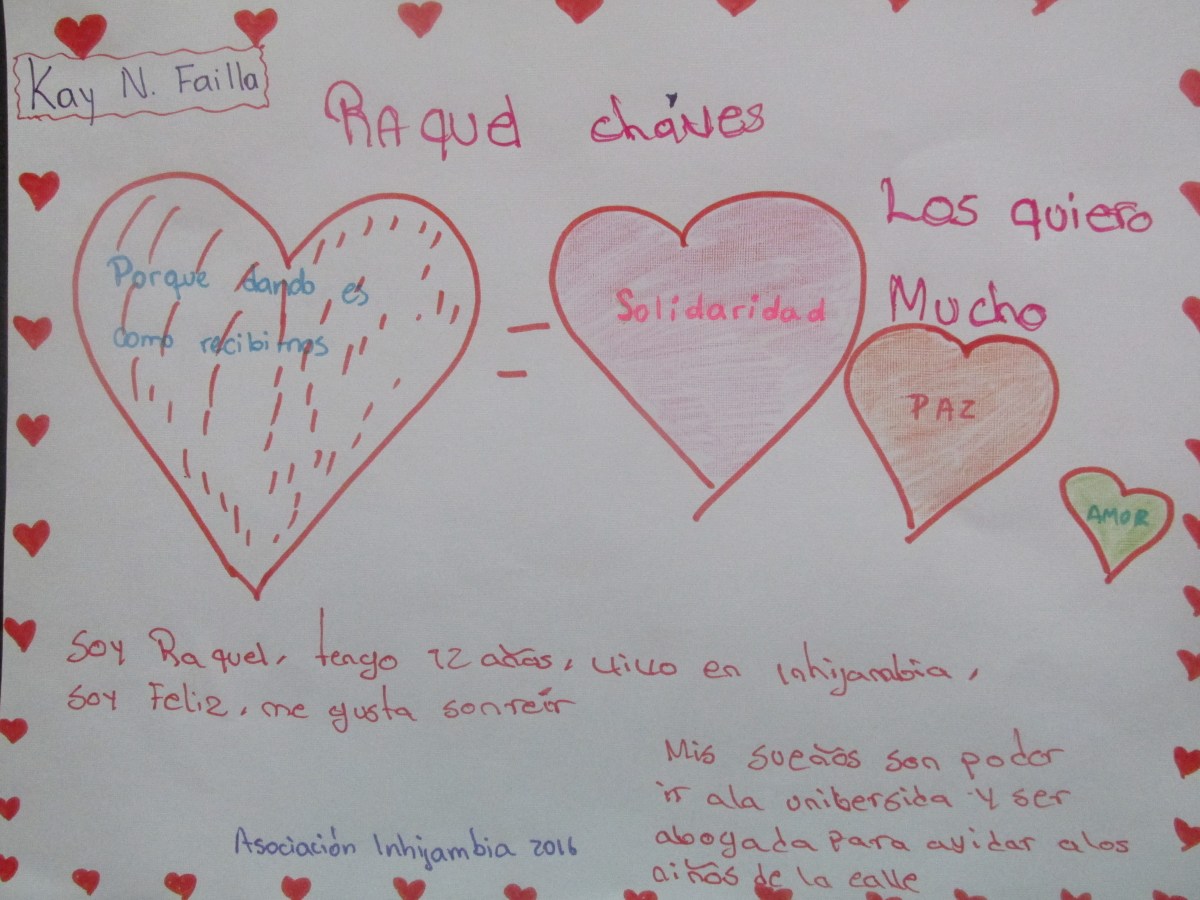 Kay N. Failla
RAquel cháves
Los quiero
Mucho
Porque dando es
como recibimos
=
Solidaridad
PAZ
AMOR
Soy Raquel, tengo 12 años, vivo en Inhijambia,
soy Feliz, me gusta sonreír
Mis sueños son poder
ir ala unibersida y ser
abogada para ayidar alos
aiños de la calle
Asociación Inhijambia 2016